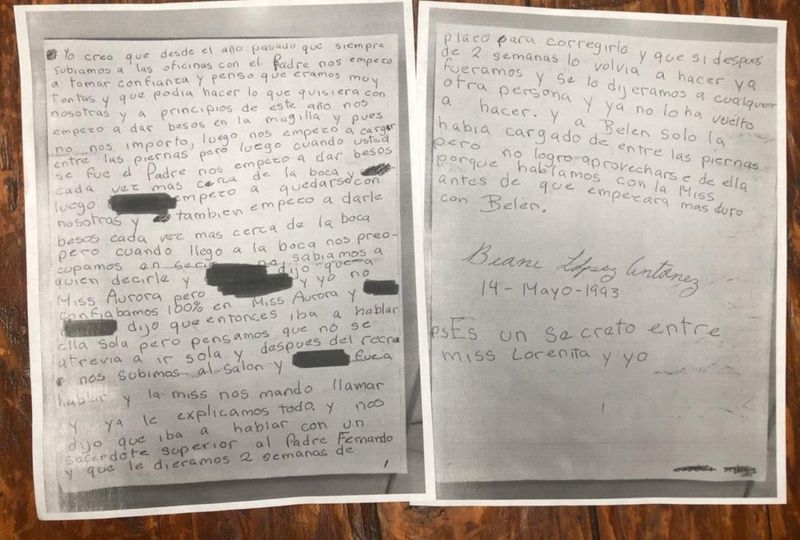 Yo creo que desde el año pasado que siempre
subiamos a las oficinas con el Padre nos empeco
a tomar confianca y penso que eramos muy
tontas y que podia hacer lo que quisiera con
nosotras y a principios de este año nos
empezo a dar besos en la magilla y pues
no nos importo, luego nos empezo a cargar
entre las piernas pero luego cuando usted
se fue el Padre nos empezo a dar besos
cada vez mas cerca de la boca y
luego empezo a quedarse con
nosotras y tambien empezo a darle
besos cada vez mas cerca de la boca
pero cuando llego a la boca nos preo-
cupamos en serio no sabiamos a
quien decirle y dijo que a
Miss Aurora pero y yo no
confiabamos 100% en Miss Aurora y
dijo que entonces iba a hablar
ella sola pero pensamos que no se
atrevia a ir sola y despues del recreo
nos subimos al salon y fue a
hablar y la miss nos mando llamar
y ya le explicamos todo. y nos
dijo que iba a hablar con un
sacerdote superior al Padre Fernando
y que le dieramos 2 semanas de
1
placo para corregirlo y que si despues
de 2 semanas lo volvia a hacer ya
fueramos y se lo dijeramos a cualquier
otra persona y ya no lo ha vuelto
a hacer. y a Belen solo la
habia cargado de entre las piernas
pero no logro aprovecharse de ella
porque hablamos con la Miss
antes de que empezara mas duro
con Belen.
Biani López Antúnez
14-Mayo-1993
ps Es un secreto entre
miss Lorenita y yo